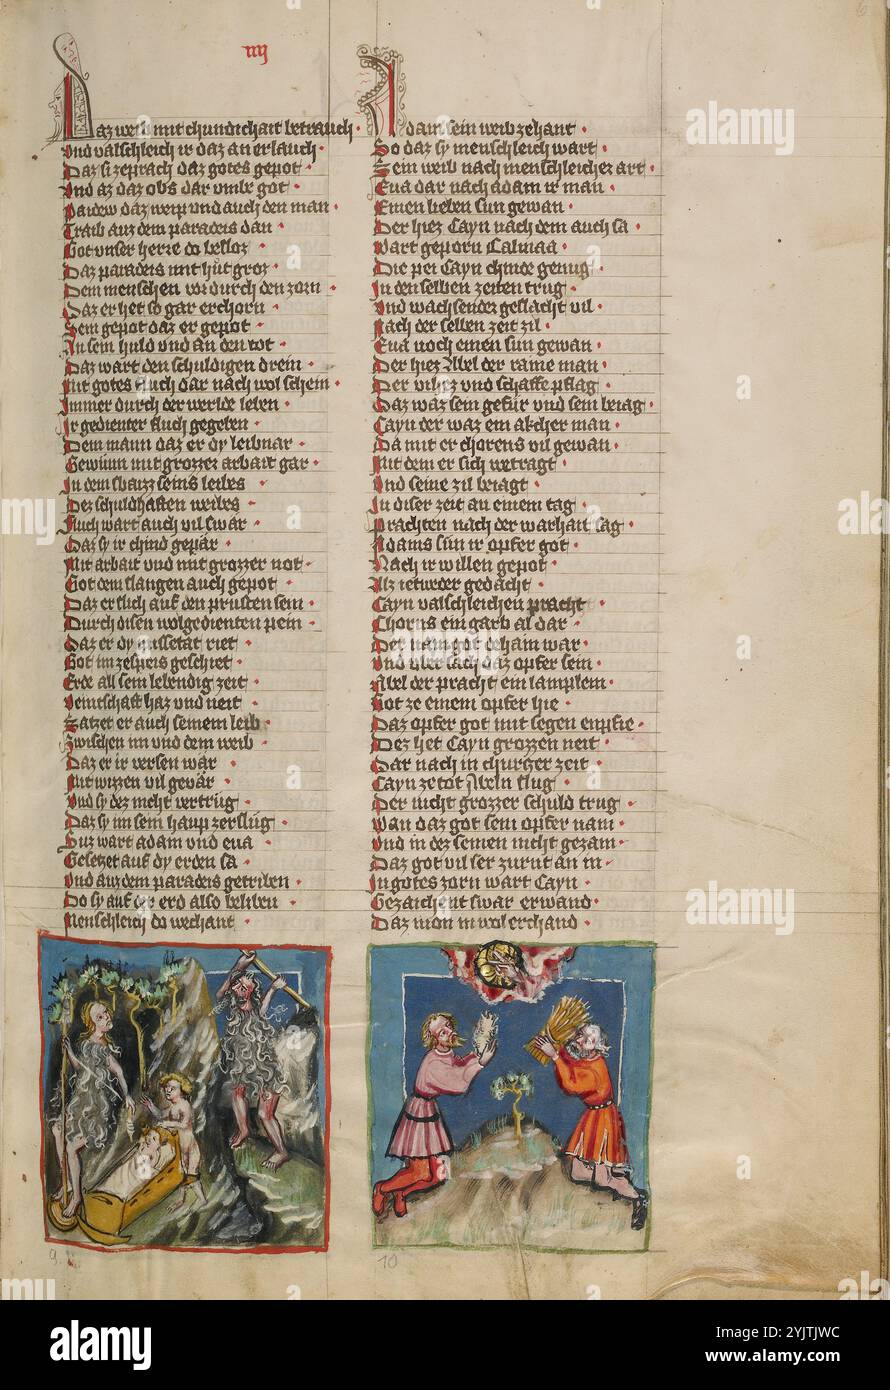 iiij
Daz weib mit chundichait betrauch
Und valschleich ir daz an erlauch
Daz si zeprach daz gotes gepot
Und az daz obs dar umbe got
Paidew daz weip und auch den man
Traib auz dem paradeis dan
Got unser herre do besloz
Daz paradeis mit hůt groz
Dem menschen vor durch den zorn
Daz er het so gar erchorn
Sein gepot daz er gepot
In sein huld und an den tot
Daz wart den schuldigen drein
Mit gotes fluch dar nach wol schein
Immer durch der werlde leben
Ir gedienter fluch gegeben
Dem mann daz er dy leibnar
Gewunn mit grozzer arbait gar
In dem swaizz seins leibes
Dez schuldhaften weibes
Fluch wart auch vil swar
Daz sy ir chind gepar
Mit arbait und mit grozzer not
Got dem slangen auch gepot
Daz er slich auf den prusten sein
Durch disen wolgedienten pein
Daz er dy missetat riet
Got im ze speis geschiet
Erde all sein lebendig zeit
Veintschaft haz und neit
Satzet er auch seinem leib
Zwischen im und dem weib
Daz er ir versen war
Mit wizzen vil gevär
Und sy dez nicht vertrüg
Daz sy im sein haup zerslüg
Suz wart adam und eua
Gesetzet auf dy erden sa
Und auz dem paradeis getriben
Do sy auf der erd also beliben
Menschleich do wechant
Adam sein weib zehant
So daz sy menschleich wart
Sein weib nach menschleicher art
Eua dar nach adam ir man
Einen lieben sun gewan
Der hiez Cayn nach dem auch sa
Wart geporn Calmaa
Die pei Cayn chinde genug
In den selben zeiten trug
Und wachsender geslächt vil
Nach der selben zeit zil
Eua noch einen sun gewan
Der hiez Abel der raine man
Der vihez und schaffe pflag
Daz waz sein gefür und sein beiag
Cayn der waz ein akcher man
Da mit er chorens vil gewan
Mit dem er sich betragt
Und seine zil beiagt
In diser zeit an einem tag
Prachten nach der warhait sag
Adams sün ir opfer got
Nach ir willen gepot
Alz ietweder gedacht
Cayn valschleichen pracht
Chorns ein garb al dar
Der nam got dehain war
Und ubersach daz opfer sein
Abel der pracht ein lamplein
Got ze einem opfer hie
Daz opfer got mit segen enpfie
Dez het Cayn grozzen neit
Dar nach in churczer zeit
Cayn ze tot Abeln slug
Der nicht grozzer schuld trug
Wan daz got sein opfer nam
Und in dez seinen nicht gezam
Daz got vil ser zurnt an in
In gotes zorn wart Cayn
Gezaichent swar er wand
Daz mon in wol erchand
9
10
alamy
Image ID: 2YJTJWC
www.alamy.com